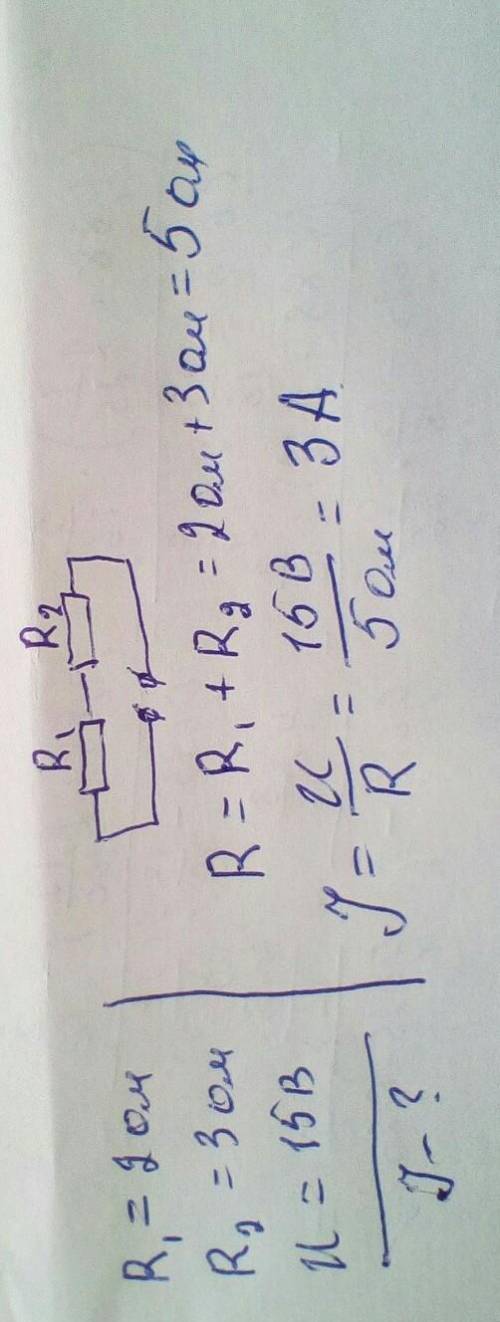 R₁ = 2 ом
R₂ = 3 ом
U = 15 В
J - ?
R₁ R₂
R = R₁ + R₂ = 2 ом + 3 ом = 5 ом
J = U/R = 15 В/5 ом = 3 А